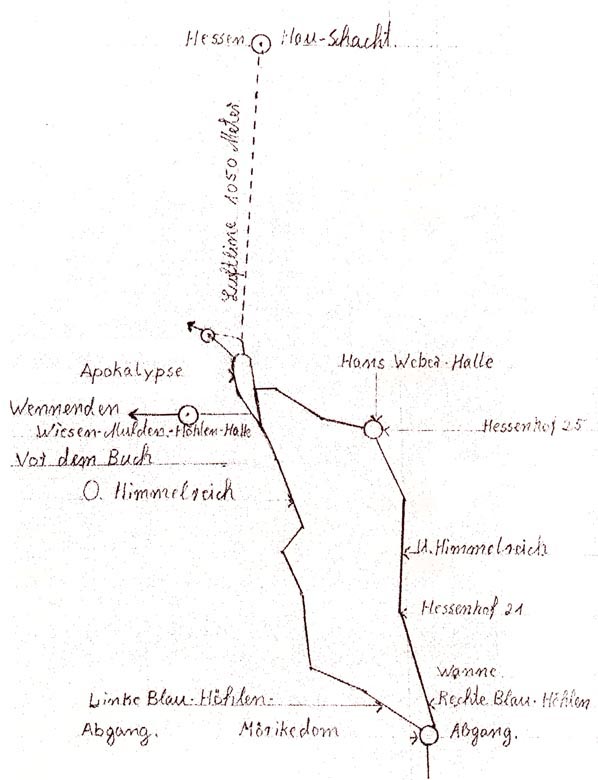 Hessen Hau-Schacht.
Luftlinie 1050 Meter
Apokalypse
Hans Weber-Halle
Wennenden
Wiesen-Mulden-Höhlen-Halle
Hessenhof 25
Vor dem Buch
O. Himmelreich
U. Himmelreich
Hessenhof 21
Wanne
Linke Blau-Höhlen-
Rechte Blau-Höhlen
Abgang. Mörikedom Abgang.